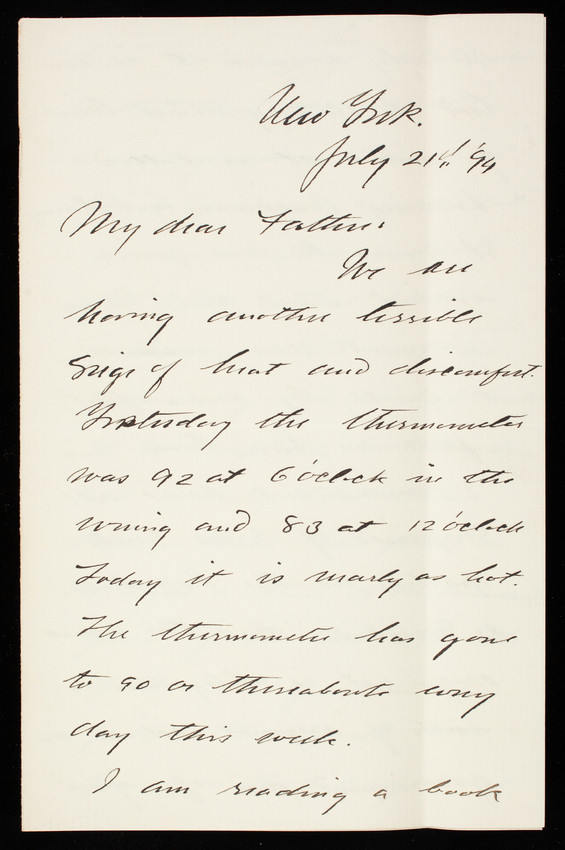 New York.
July 21st '94
My dear Father:
We are
having another terrible
seige of heat and discomfort.
Yesterday the thermometer
was 92 at 6 o'clock in the
evening and 83 at 12 o'clock
Today it is nearly as hot.
The thermometer has gone
to 90 or thereabouts every
day this week.
I am reading a book